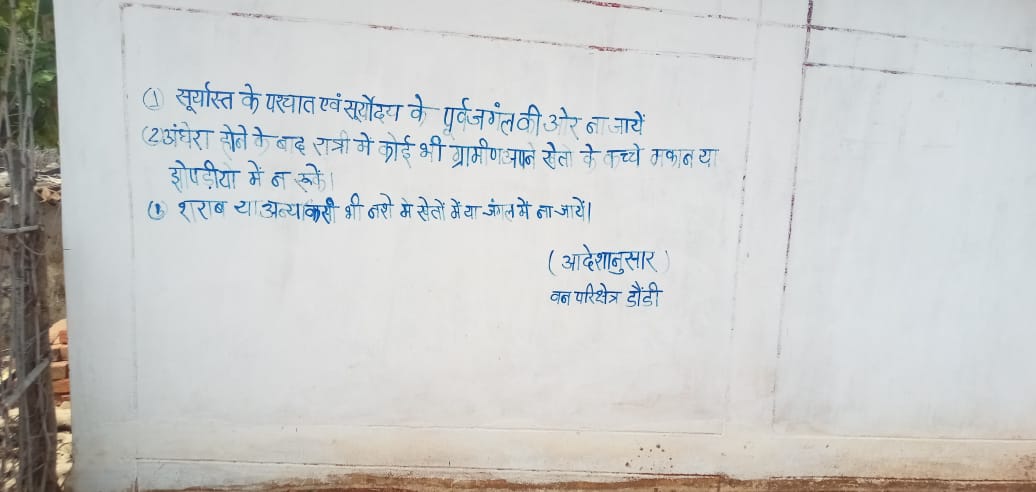 ① सूर्यास्त के पश्चात एवं सूर्योदय के पूर्व जगंल की ओर ना जायें
(2) अंधेरा होने के बाद रात्री में कोई भी ग्रामीण अपने खेतो के कच्चे मकान या
झोपड़ीया में न रूकें।
शराब या अन्य किसी भी नशे मे खेतों में या जंगल में ना जायें।
( आदेशानुसार )
वन परिक्षेत्र डौंडी